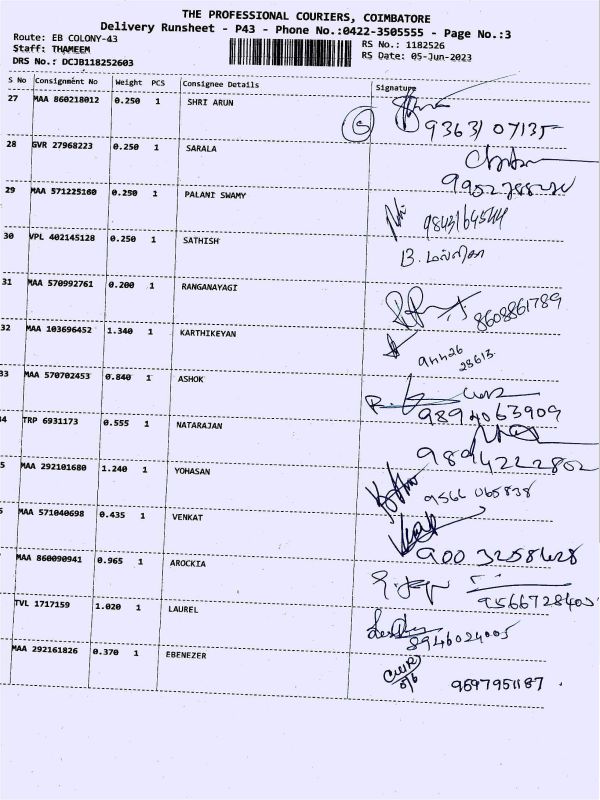 THE PROFESSIONAL COURIERS, COIMBATORE
Delivery Runsheet - P43 - Phone No.:0422-3505555 - Page No.:3
Route: EB COLONY-43
Staff: THAMEEM
DRS No.: DCJB118252603
RS No.: 1182526
RS Date: 05-Jun-2023
S No Consignment No Weight PCS Consignee Details Signature
27 MAA 860218012 0.250 1 SHRI ARUN
9363107135
28 GVR 27968223 0.250 1 SARALA
29 MAA 571225160 0.250 1 PALANI SWAMY
30 VPL 402145128 0.250 1 SATHISH
B. மல்லிகா
31 MAA 570992761 0.200 1 RANGANAYAGI
8608861789
32 MAA 103696452 1.340 1 KARTHIKEYAN
33 MAA 570702453 0.840 1 ASHOK
9894063909
4 TRP 6931173 0.555 1 NATARAJAN
9894222802
5 MAA 292101680 1.240 1 YOHASAN
9566 065838
MAA 571040698 0.435 1 VENKAT
900 3258428
MAA 860090941 0.965 1 AROCKIA
9566728405
TVL 1717159 1.020 1 LAUREL
8946024005
MAA 292161826 0.370 1 EBENEZER
9597951187